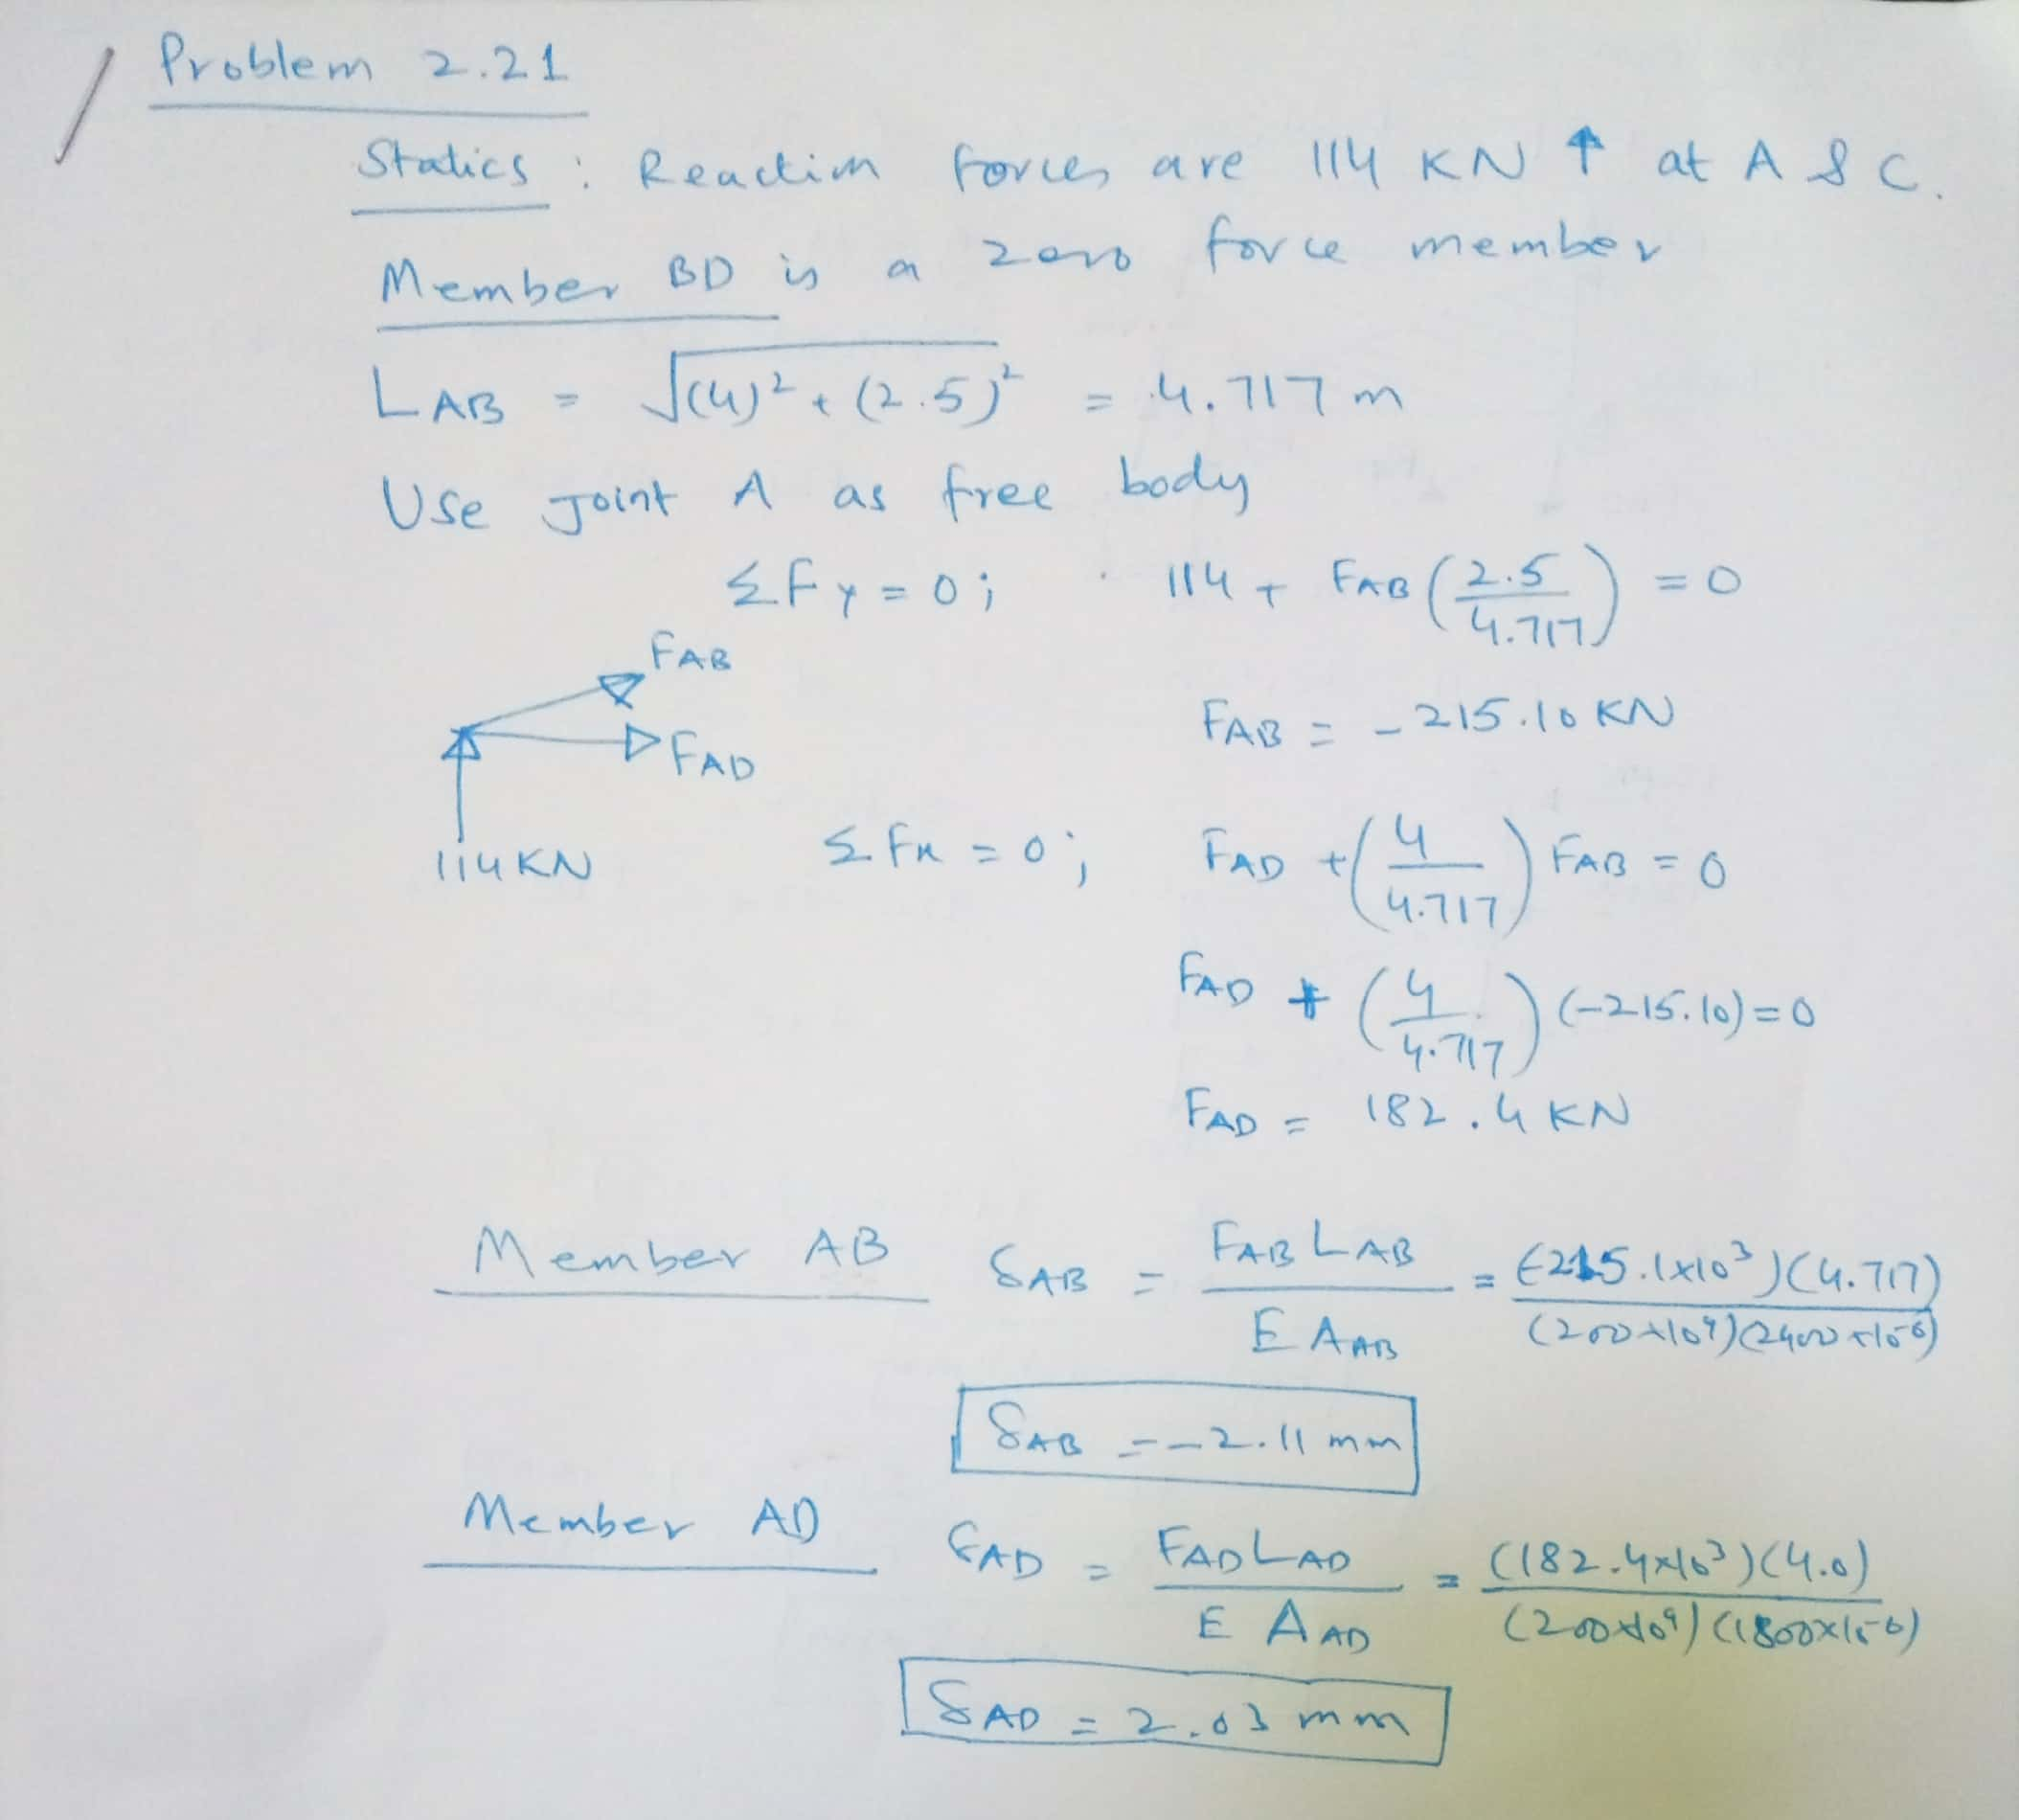 Problem 2.21
Statics : Reaction forces are 114 KN ↑ at A & C.
Member BD is a zero force member
LAB = √(4)² + (2.5)² = 4.717 m
Use Joint A as free body
ΣFy = 0; 114 + FAB (2.5/4.717) = 0
FAB
FAB = -215.10 KN
FAD
114 KN
ΣFx = 0; FAD + (4/4.717) FAB = 0
FAD + (4/4.717) (-215.10) = 0
FAD = 182.4 KN
Member AB δAB = FAB LAB / E AAB = (-215.1x10³)(4.717) / (200x10⁹)(2400x10⁻⁶)
δAB = -2.11 mm
Member AD δAD = FAD LAD / E AAD = (182.4x10³)(4.0) / (200x10⁹)(1800x10⁻⁶)
δAD = 2.03 mm